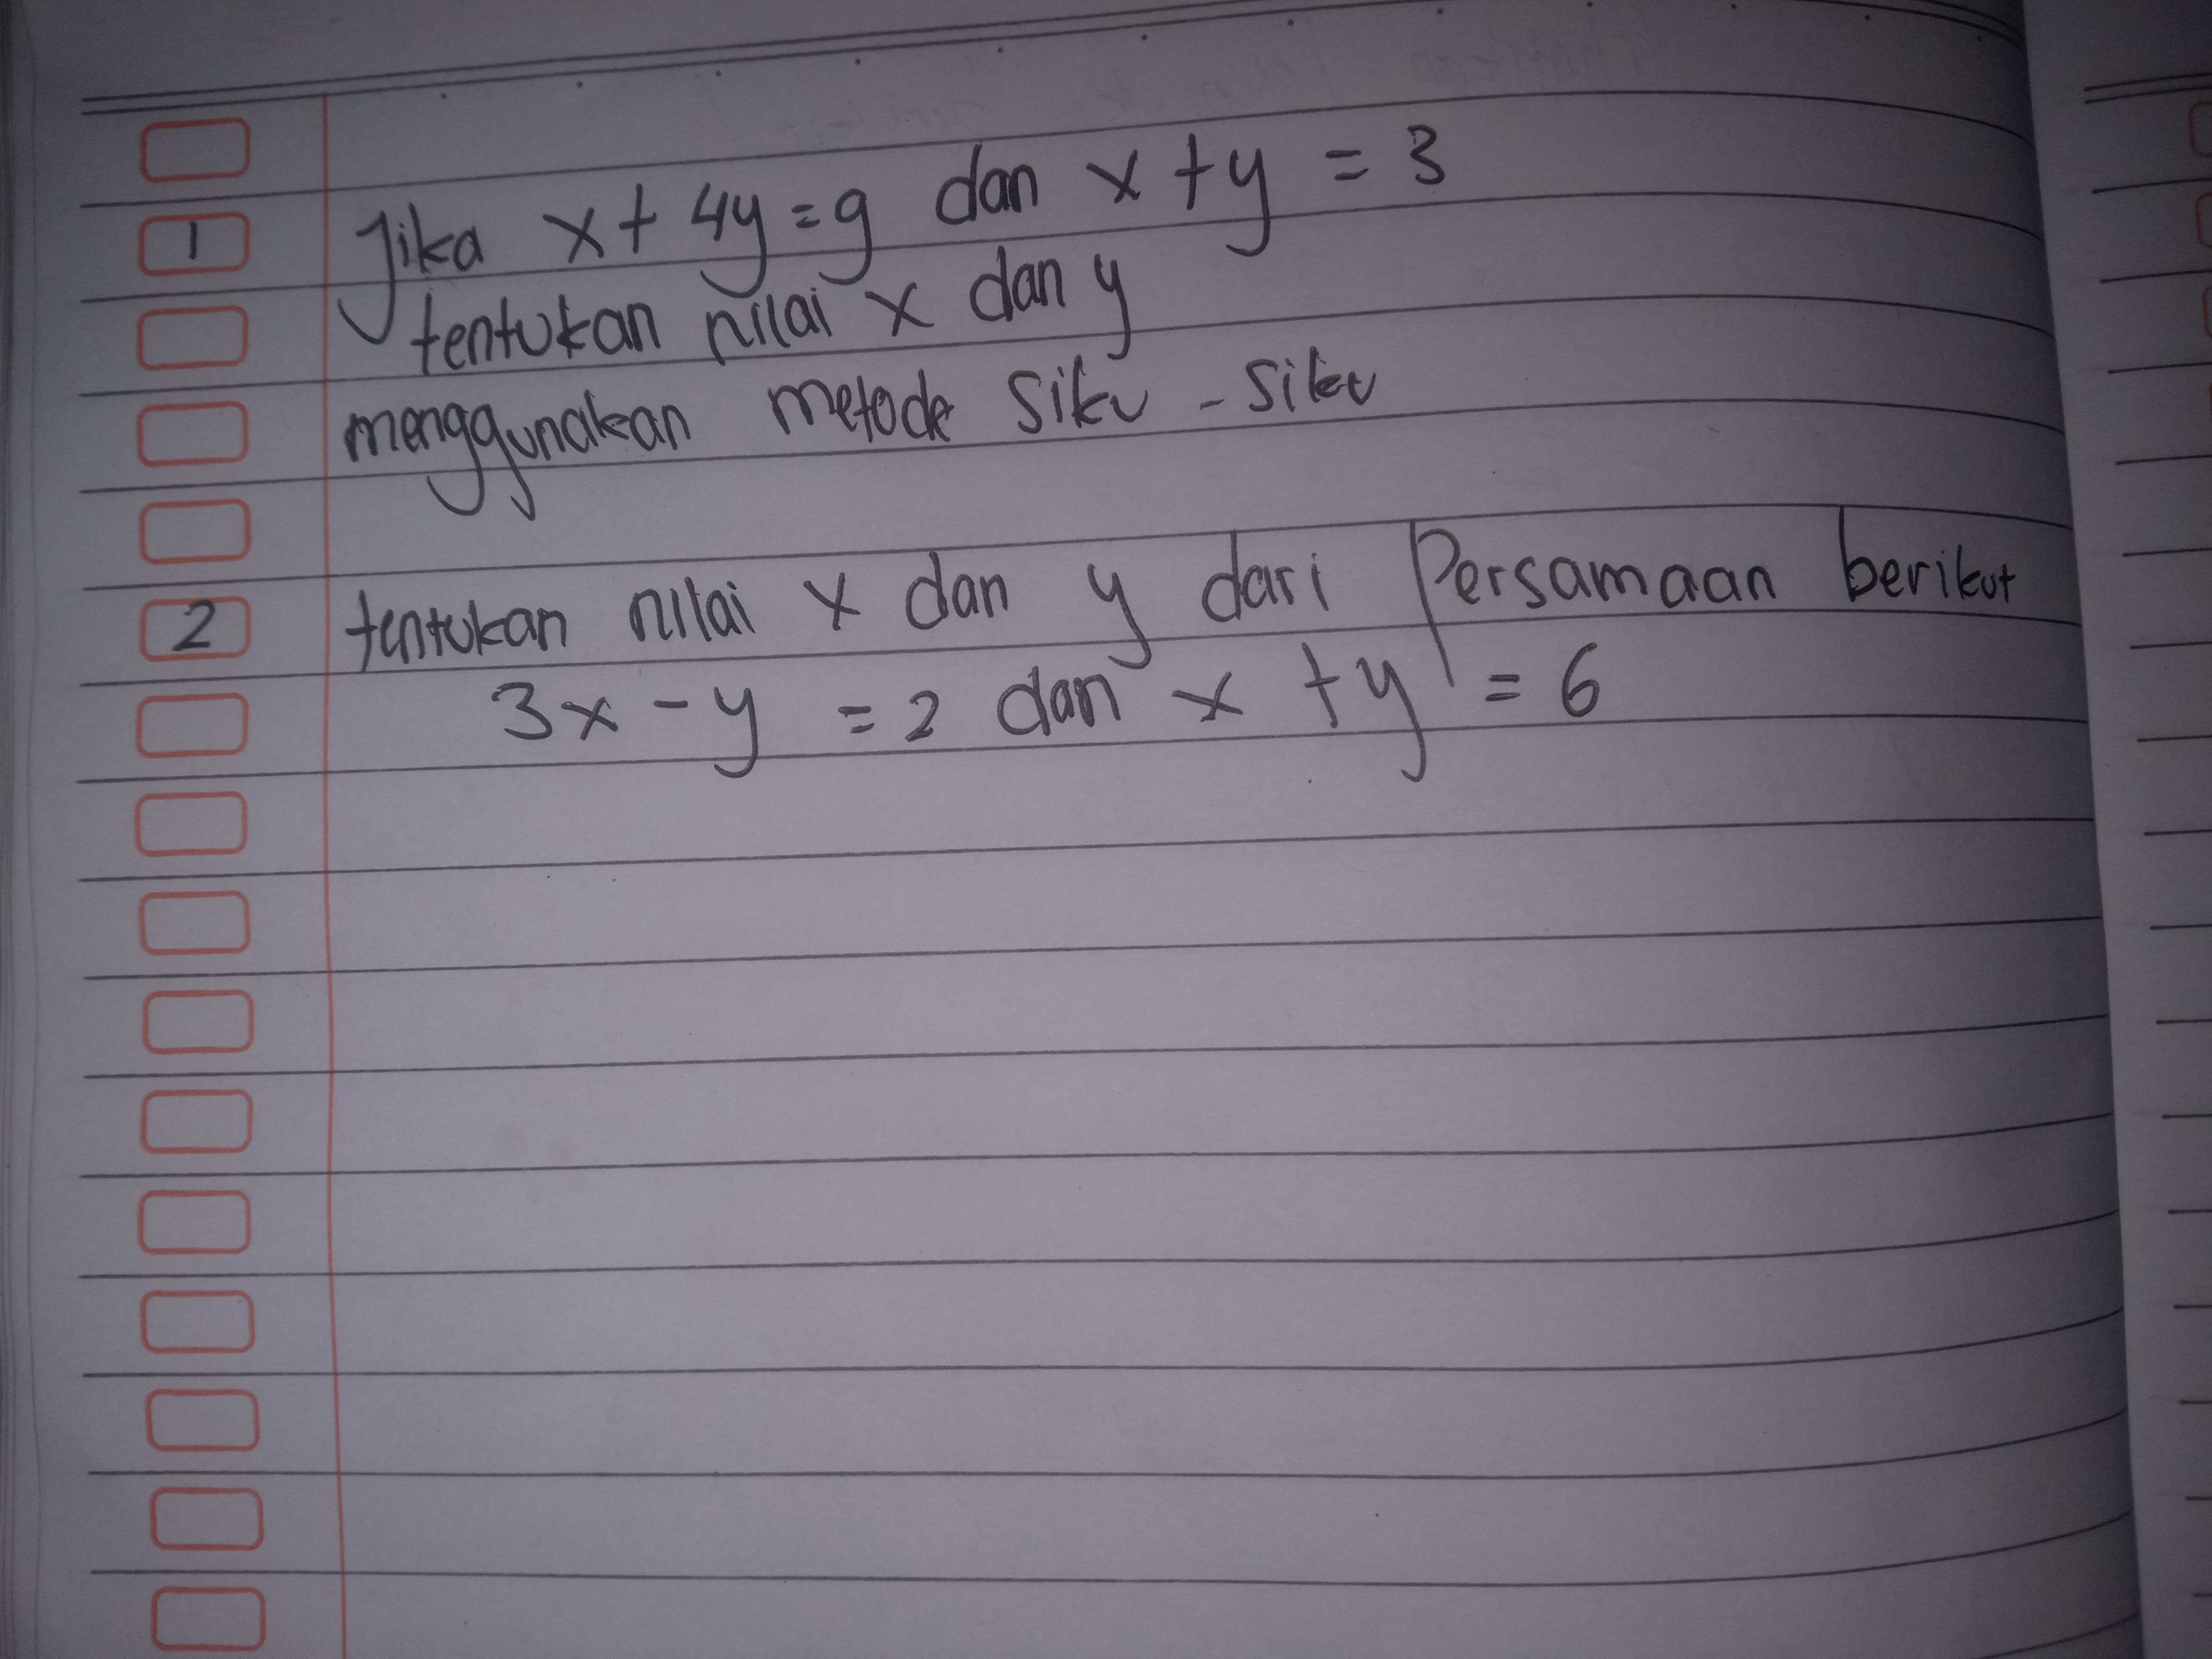 1 Jika x + 4y = 9 dan x + y = 3
tentukan nilai x dan y
menggunakan metode siku - siku
2 tentukan nilai x dan y dari Persamaan berikut
3x - y = 2 dan x + y = 6